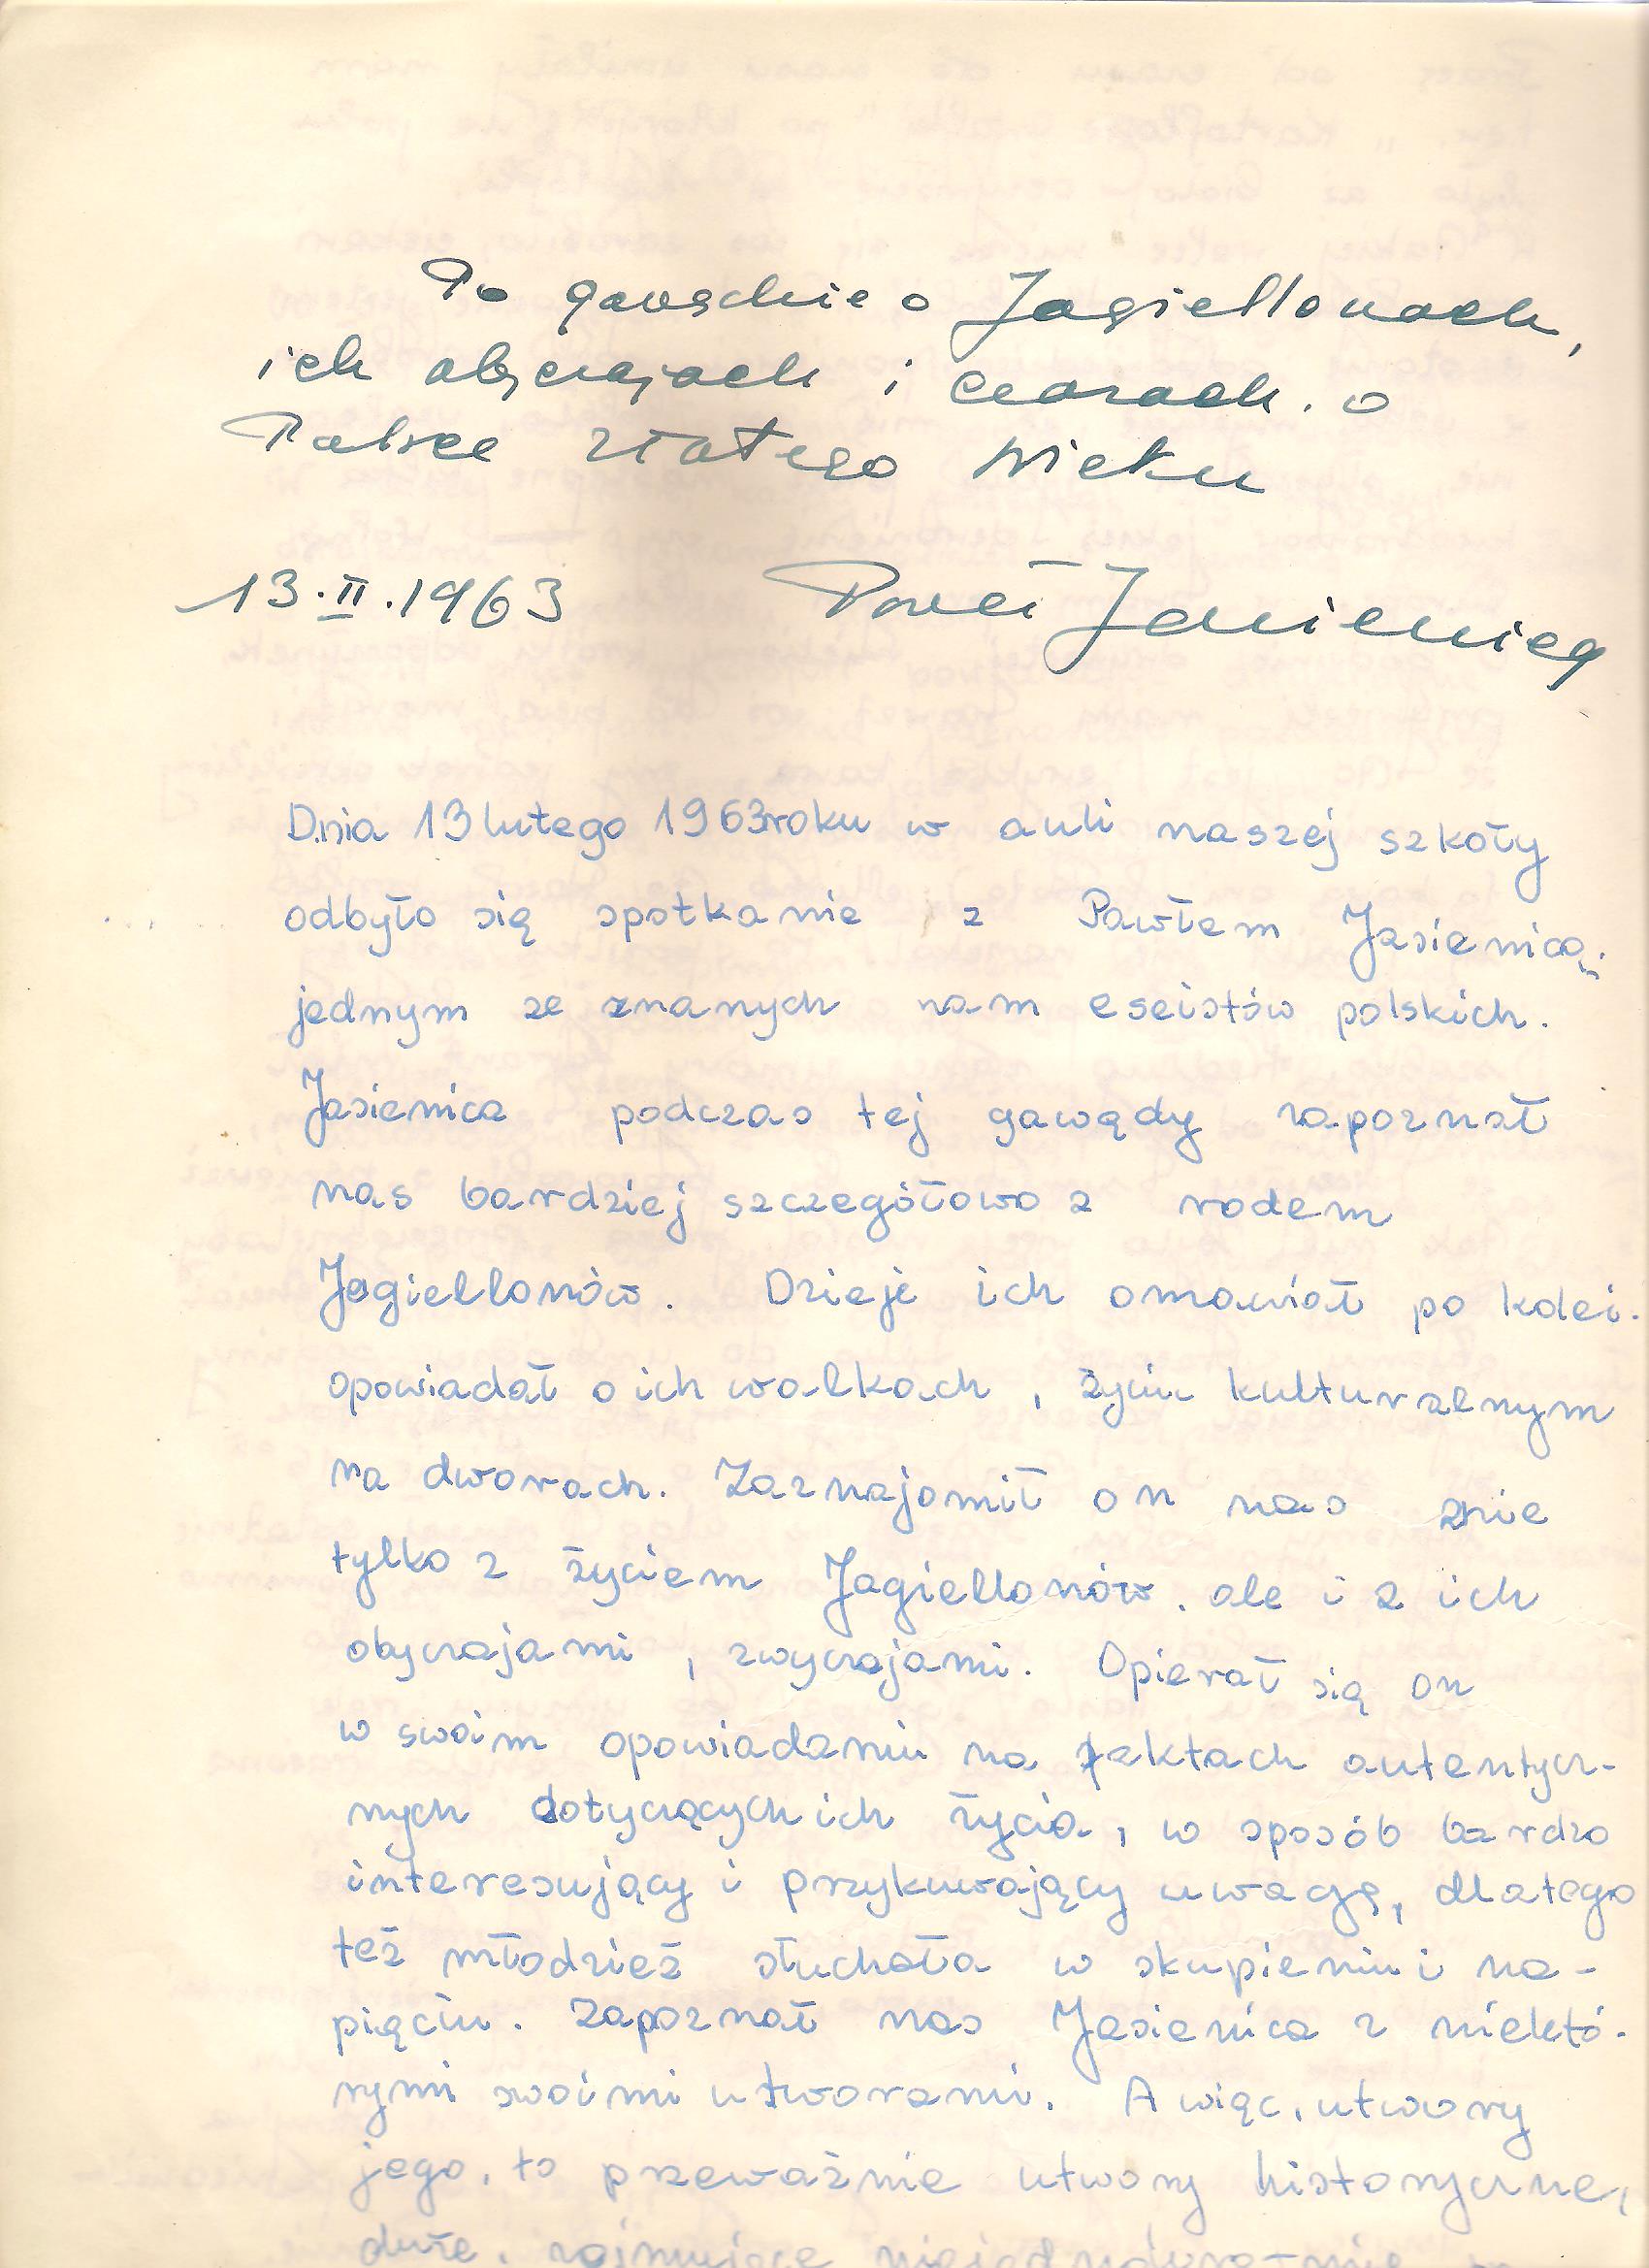 Po gawędzie o Jagiellonach,
ich obyczajach i czasach. o
Polsce złotego wieku
13.II.1963 Paweł Jasienica
Dnia 13 lutego 1963 roku w auli naszej szkoły
odbyło się spotkanie z Pawłem Jasienicą,
jednym ze znanych nam eseistów polskich.
Jasienica podczas tej gawędy zapoznał
nas bardziej szczegółowo z rodem
Jagiellonów. Dzieje ich omawiał po kolei.
opowiadał o ich walkach, życiu kulturalnym
na dworach. Zaznajomił on nas nie
tylko z życiem Jagiellonów, ale i z ich
obyczajami, zwyczajami. Opierał się on
w swoim opowiadaniu na faktach autentycz-
nych dotyczących ich życia, w sposób bardzo
interesujący i przykuwający uwagę, dlatego
też młodzież słuchała w skupieniu i na-
pięciu. Zapoznał nas Jasienica z niektó-
rymi swoimi utworami. A więc, utwory
jego, to przeważnie utwory historyczne,
duże, zajmujące niejednokrotnie